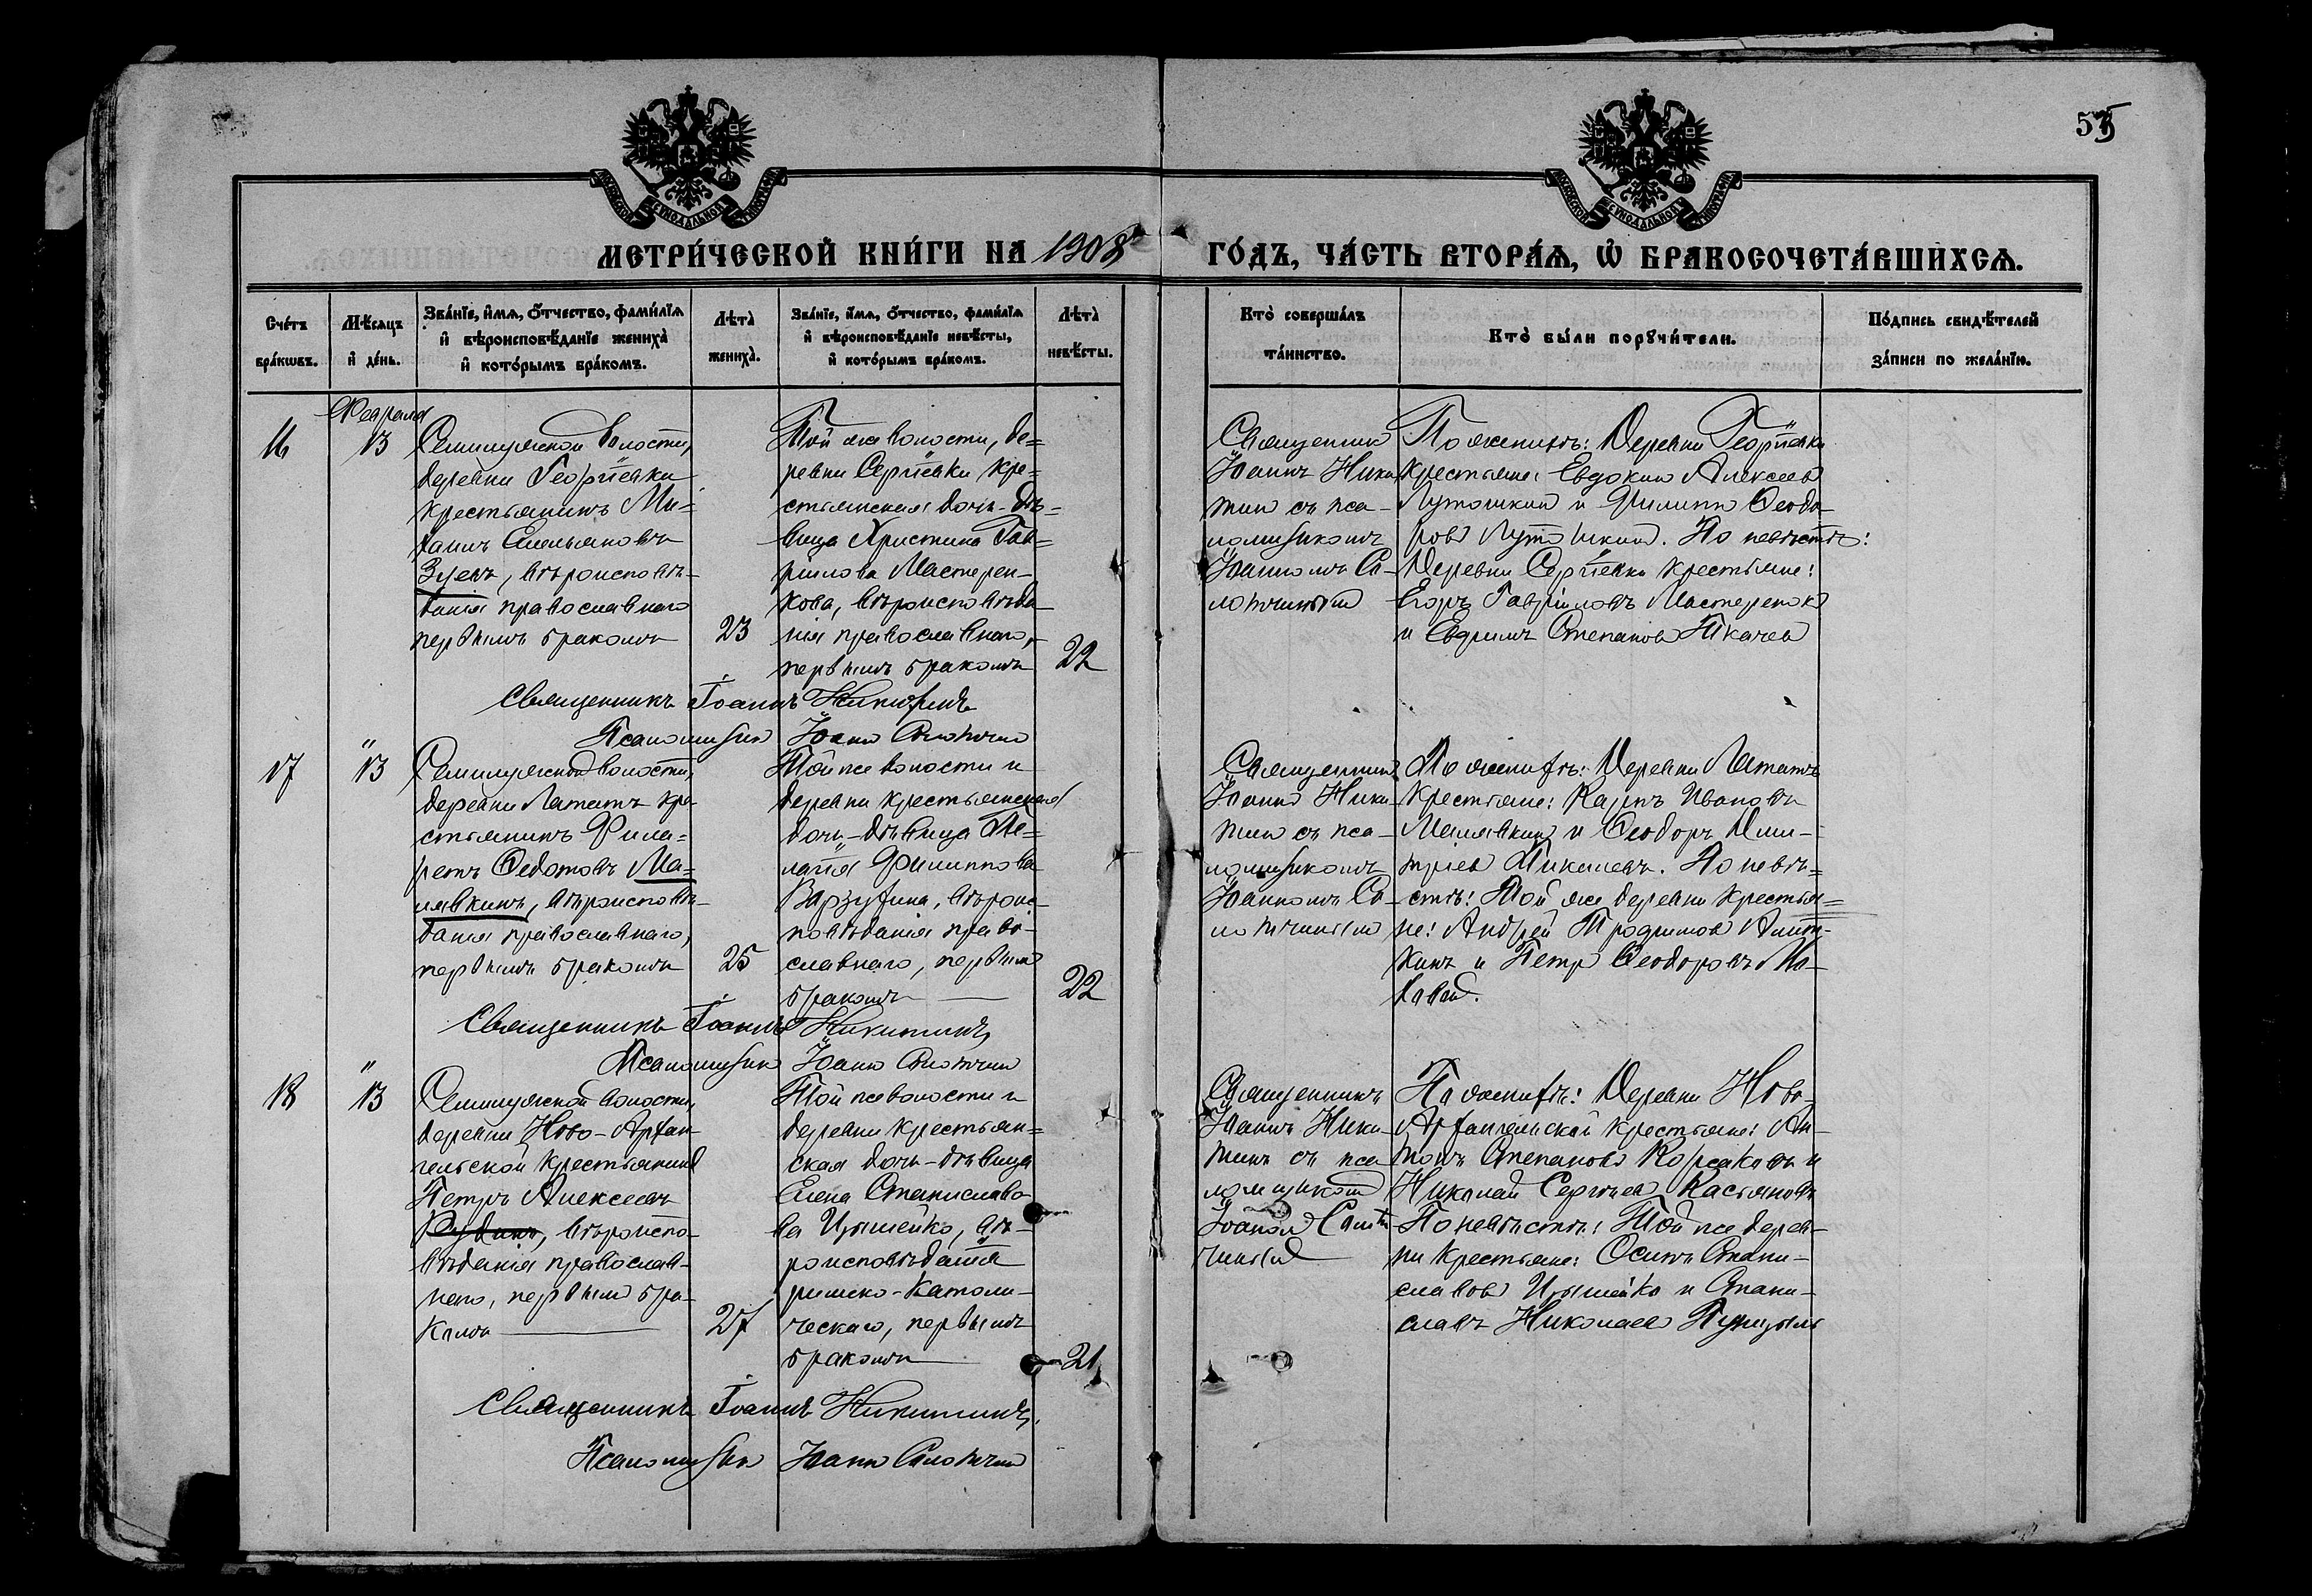 55
МОСКОВСКОЙ СѴНОДАЛЬНОЙ ТИПОГРАФІИ
МОСКОВСКОЙ СѴНОДАЛЬНОЙ ТИПОГРАФІИ
МЕТРИ́ЧЕСКОЙ КНИ́ГИ НА 1908 ГО́ДЪ, ЧА́СТЬ ВТОРА́Ѧ, Ѽ БРАКОСОЧЕТА́ВШИХСѦ.
Сче́тъ бра́кѡвъ.
Мѣ́сѧцъ и҆ де́нь.
Зва́нїе, и҆́мѧ, ѻ҆́тчество, фами́лїѧ и҆ вѣроисповѣ́данїе жениха̀ и҆ кото́рымъ бра́комъ.
Лѣта̀ жениха̀.
Зва́нїе, и҆́мѧ, ѻ҆́тчество, фами́лїѧ и҆ вѣроисповѣ́данїе невѣ́сты, и҆ кото́рымъ бра́комъ.
Лѣта̀ невѣ́сты.
Кто̀ соверша́лъ та́инство.
Кто̀ бы́ли порꙋчи́тели.
По́дпись свидѣ́телей за́писи по жела́нїю.
Февраля
16
13
волости,
деревни Георгіевки
крестьянинъ Ми-
хаилъ Емельяновъ
Зуевъ, вѣроисповѣ-
данія православнаго
первымъ бракомъ
23
Той же волости, де=
ревни Сергіевки кре=
стьянская дочь-дѣ=
вица Христина Гав=
рилова Мастерен-
кова, вѣроисповѣда
нія православнаго,
первымъ бракомъ
22
Священникъ
Іоаннъ Ники
тин съ пса-
ломщикомъ
Іоанномъ
По женихѣ: Деревни Георгіевки
крестьяне: Евдоким Алексеев
и Филипп Ѳеодо-
ров. По невѣстѣ:
Деревни Сергіевки крестьяне:
Егоръ Гавріиловъ Мастеренко
и Ефрим Степанов Ткачев
Священникъ Іоаннъ Никитинъ
Псаломщик Іоанн
17
" 13
волости,
деревни Лататъ кре
стьянинъ Фила=
ретъ Ѳедотовъ Ма=
лявкинъ, вѣроисповѣ-
данія православнаго,
первымъ бракомъ
25
Той же волости и
деревни крестьянская
дочь-дѣвица Пе=
лагія Филиппова
Варзухина, вѣроис-
повѣданія право-
славнаго, первым
бракомъ
22
Священник
Іоанн Ники-
тин съ пса-
ломщикомъ
Іоанномъ
По женихѣ: Деревни Лататъ
крестьяне: Карпъ Ивановъ
Малявкин и Ѳеодоръ Дми-
тріев. По невѣ=
стѣ: Той же деревни крестья=
не: Андрей Трофимов
и Петр Ѳеодоровъ
Священникъ Іоаннъ Никитинъ
Псаломщик Іоанн
18
" 13
волости,
деревни Ново-Архан
гельской крестьянинъ
Петръ Алексеевъ
Рудинъ, вѣроиспо-
вѣданія православ-
наго, первым бра-
комъ
27
Той же волости и
деревни крестьян=
ская дочь-дѣвица
Елена Станиславо
ва Цышейко, вѣ-
роисповѣданія
римско-католи-
ческаго, первымъ
бракомъ
21
Священникъ
Іоаннъ Ники-
тинъ съ пса
ломщиком
По женихѣ: Деревни Ново-
Архангельской крестьяне: Ан-
тонъ Степановъ Корсаковъ и
Николай Сергѣев Касьяновъ
По невѣстѣ: Той же дерев-
ни крестьяне: Осипъ Стани-
славов Цышейко и Стани-
славъ Николаев
Священникъ Іоаннъ Никитинъ.
Псаломщик Іоанн